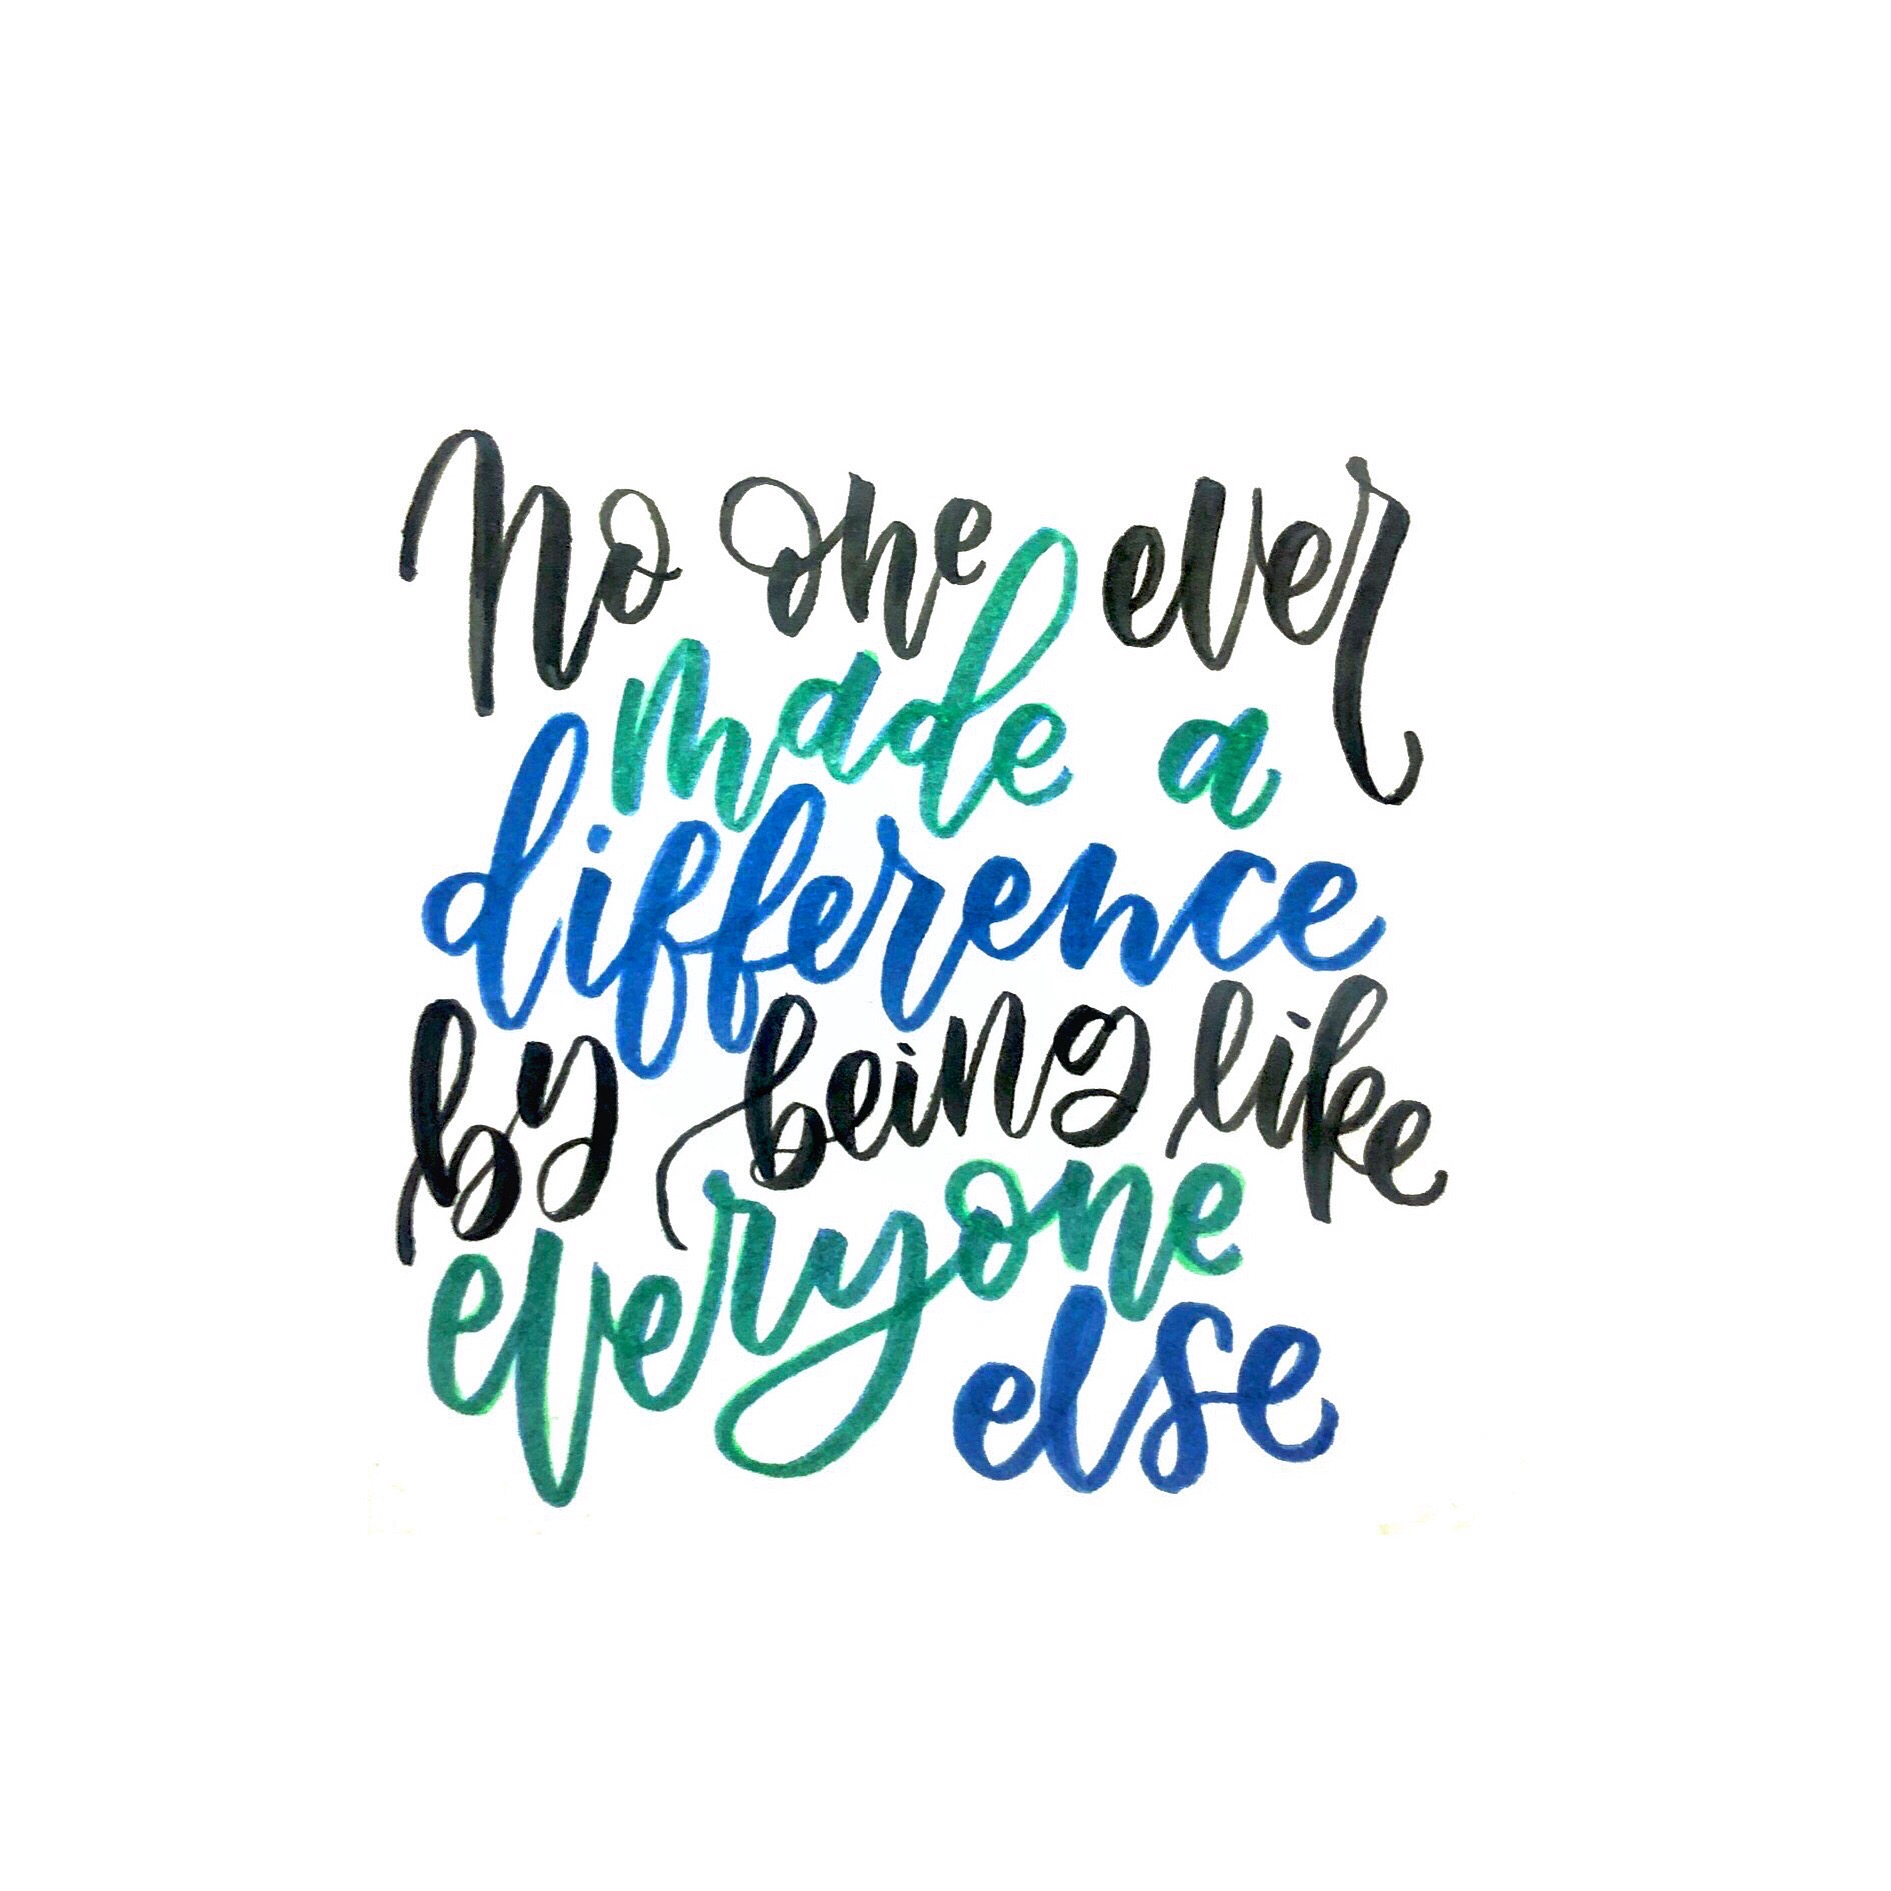 No one ever
made a
difference
by being like
everyone
else